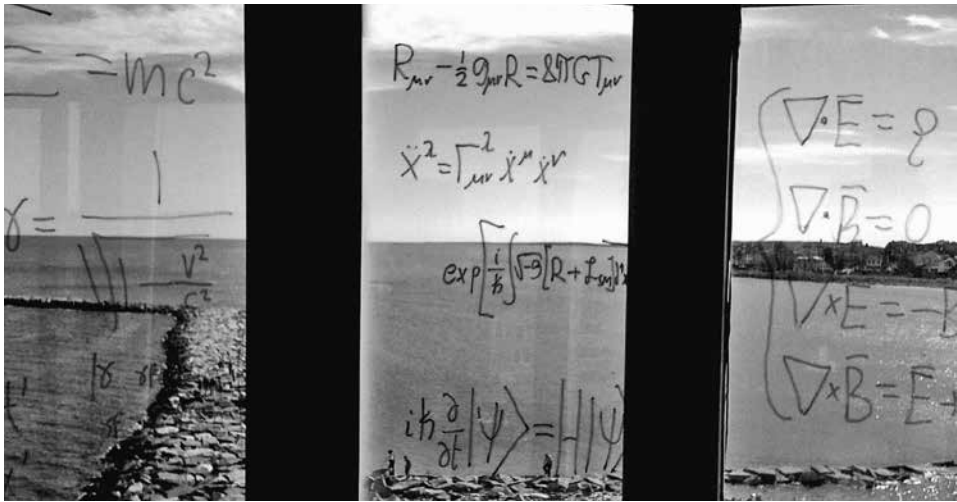 = mc²
γ = 1 / √(1 - v²/c²)
R_μν - ½ g_μν R = 8πG T_μν
ẍ^λ = Γ^λ_μν ẋ^μ ẋ^ν
exp[i/ħ ∫√-g [R + ℒ_sm] d⁴x
iħ ∂/∂t |ψ⟩ = H|ψ⟩
∇·E̅ = ρ
∇·B̅ = 0
∇×E̅ = -
∇×B̅ = E̅ +